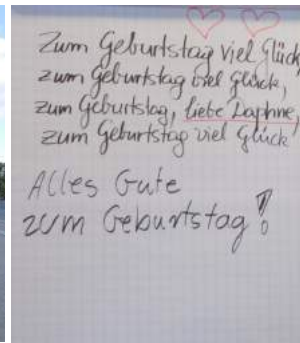 Zum Geburtstag viel Glück,
zum Geburtstag viel Glück,
zum Geburtstag, liebe Daphne,
zum Geburtstag viel Glück!
Alles Gute
zum Geburtstag!